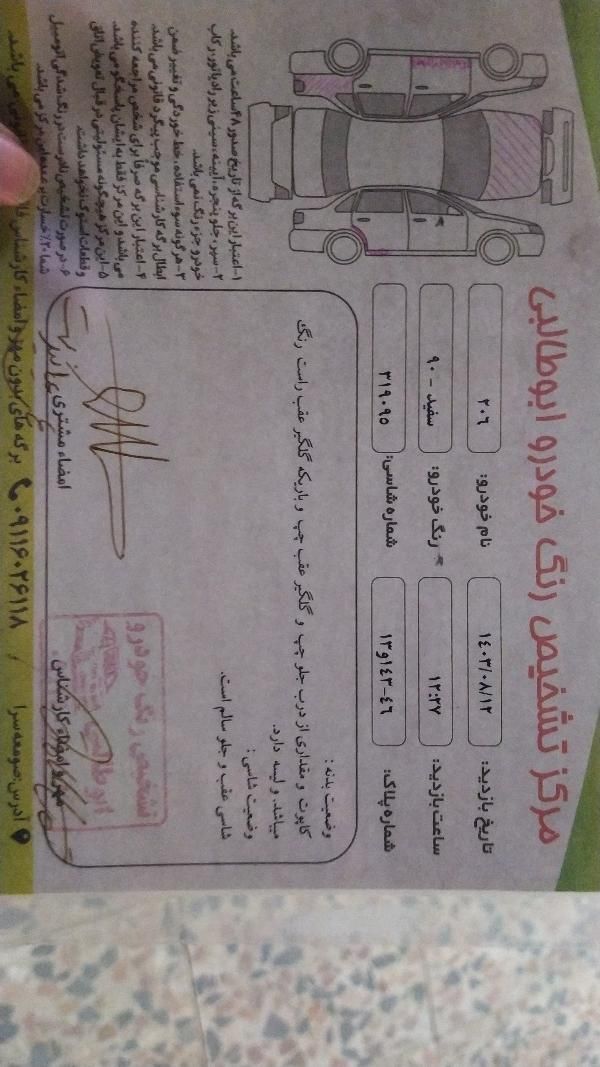 مرکز تشخیص رنگ خودرو ابوطالبی
تاریخ بازدید: ۱۴۰۳/۰۸/۱۲
نام خودرو: ۲۰۶
ساعت بازدید: ۱۲:۲۷
رنگ خودرو: سفید - ۹۰
شماره پلاک: ۴۶-۱۴۳و۱۳
شماره شاسی: ۳۱۹۰۹۵
وضعیت بدنه :
کاپوت و مقداری از درب جلو چپ و گلگیر عقب چپ و باریکه گلگیر عقب راست رنگ
میباشد. و لیسه دارد.
وضعیت شاسی :
شاسی عقب و جلو سالم است.
تشخیص رنگ خودرو
ابوطالبی
مهر و امضاء کارشناس
امضاء مشتری
۱- اعتبار این برگه از تاریخ صدور ۴۸ ساعت می باشد.
۲- سپر، جلو پنجره، آیینه، سینی زیر رادیاتور، رکاب
خودرو جزء رنگ نمی باشد.
۳- هرگونه سوء استفاده، خط خوردگی و تغییر ضمن
ابطال برگه کارشناسی موجب پیگرد قانونی می باشد.
۴- اعتبار این برگه صرفا برای شخص مراجعه کننده
می باشد و این مرکز فقط به ایشان پاسخگو می باشد.
۵- این مرکز هیچگونه مسئولیتی در قبال تعویض اتاق
و قطعات استوک نخواهد داشت.
۶- در صورت تشخیص نادرست در رنگ شدگی اتومبیل
شما ۲٪ خسارت بر عهده این مرکز می باشد.
برگه های بدون مهر و امضاء کارشناس می باشد.
۰۹۱۱۶۰۲۶۱۱۸
آدرس: صومعه سرا